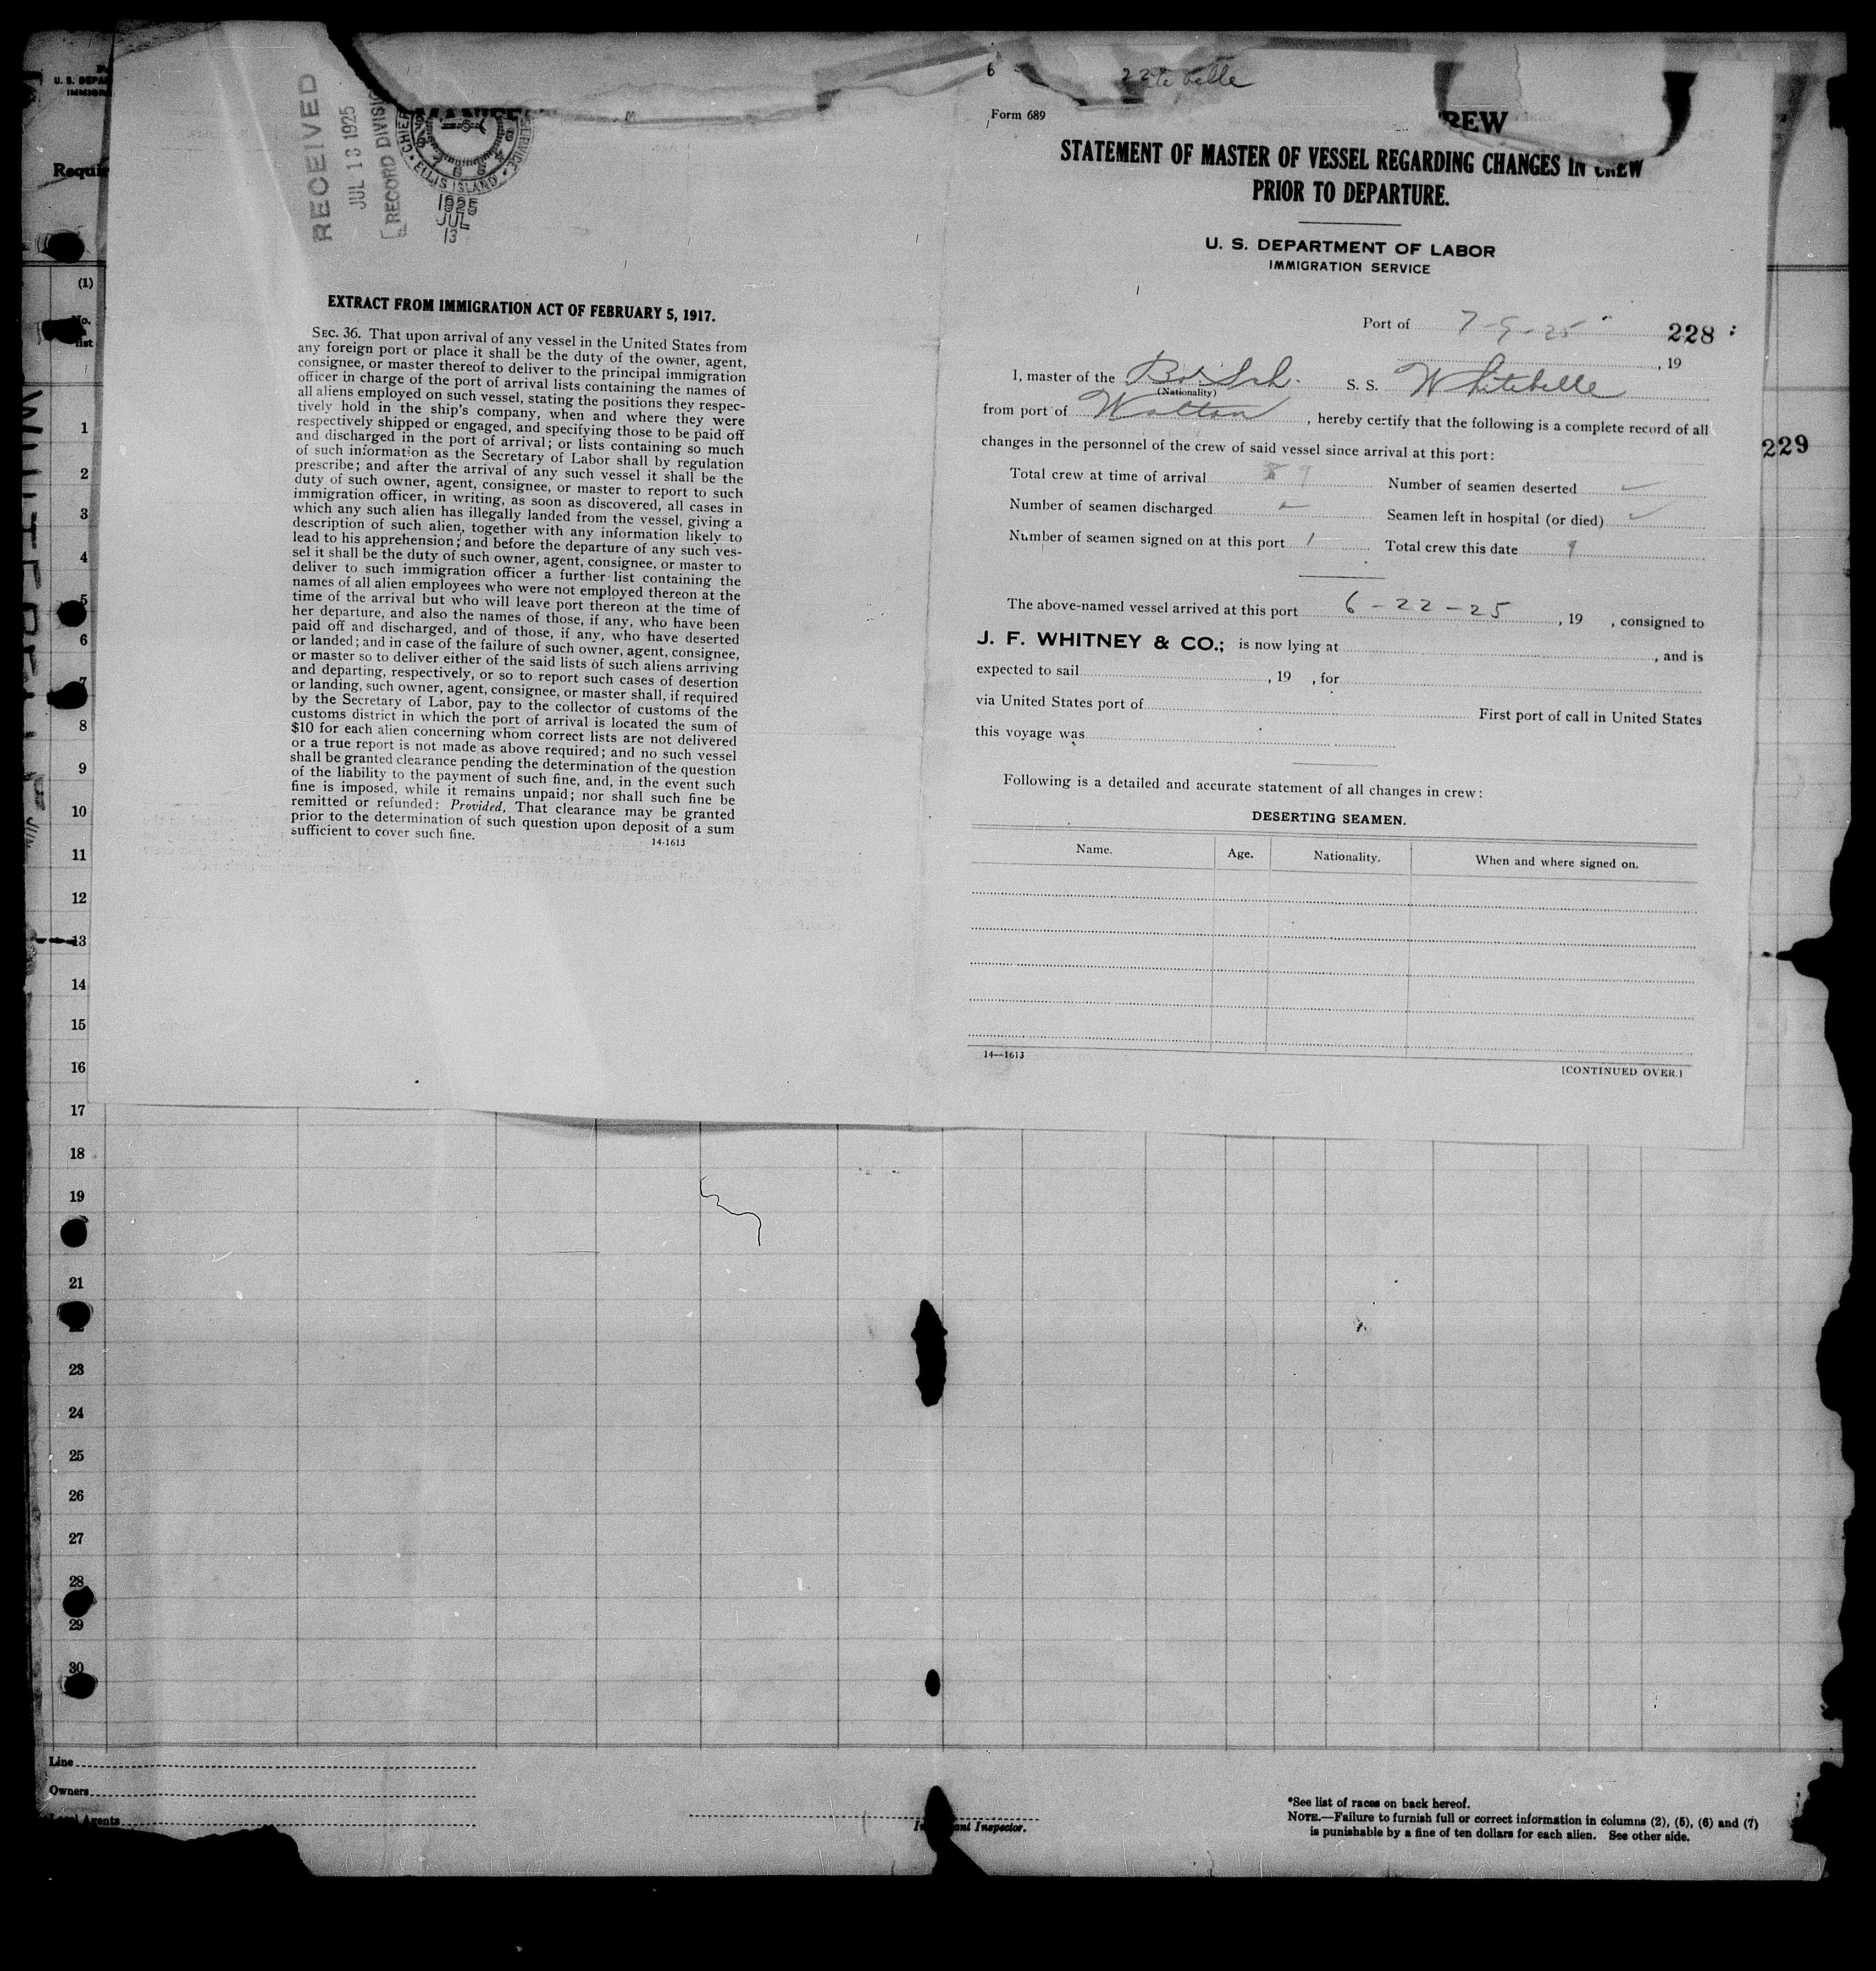 RECEIVED
JUL 13 1925
RECORD DIVISION
ELLIS ISLAND
1925
JUL
13
EXTRACT FROM IMMIGRATION ACT OF FEBRUARY 5, 1917.
SEC. 36. That upon arrival of any vessel in the United States from
any foreign port or place it shall be the duty of the owner, agent,
consignee, or master thereof to deliver to the principal immigration
officer in charge of the port of arrival lists containing the names of
all aliens employed on such vessel, stating the positions they respec-
tively hold in the ship's company, when and where they were
respectively shipped or engaged, and specifying those to be paid off
and discharged in the port of arrival; or lists containing so much
of such information as the Secretary of Labor shall by regulation
prescribe; and after the arrival of any such vessel it shall be the
duty of such owner, agent, consignee, or master to report to such
immigration officer, in writing, as soon as discovered, all cases in
which any such alien has illegally landed from the vessel, giving a
description of such alien, together with any information likely to
lead to his apprehension; and before the departure of any such ves-
sel it shall be the duty of such owner, agent, consignee, or master to
deliver to such immigration officer a further list containing the
names of all alien employees who were not employed thereon at the
time of the arrival but who will leave port thereon at the time of
her departure, and also the names of those, if any, who have been
paid off and discharged, and of those, if any, who have deserted
or landed; and in case of the failure of such owner, agent, consignee,
or master so to deliver either of the said lists of such aliens arriving
and departing, respectively, or so to report such cases of desertion
or landing, such owner, agent, consignee, or master shall, if required
by the Secretary of Labor, pay to the collector of customs of the
customs district in which the port of arrival is located the sum of
$10 for each alien concerning whom correct lists are not delivered
or a true report is not made as above required; and no such vessel
shall be granted clearance pending the determination of the question
of the liability to the payment of such fine, and, in the event such
fine is imposed, while it remains unpaid; nor shall such fine be
remitted or refunded: Provided, That clearance may be granted
prior to the determination of such question upon deposit of a sum
sufficient to cover such fine.
14-1613
6
Form 689
REW
STATEMENT OF MASTER OF VESSEL REGARDING CHANGES IN CREW
PRIOR TO DEPARTURE.
U. S. DEPARTMENT OF LABOR
IMMIGRATION SERVICE
Port of 7-9-25 228
, 19
I, master of the Br Sch. S. S. Whitebelle
(Nationality)
from port of Walton, hereby certify that the following is a complete record of all
changes in the personnel of the crew of said vessel since arrival at this port:
Total crew at time of arrival 9 Number of seamen deserted ✓
Number of seamen discharged Seamen left in hospital (or died) ✓
Number of seamen signed on at this port 1 Total crew this date 9
The above-named vessel arrived at this port 6-22-25, 19 , consigned to
J. F. WHITNEY & CO.; is now lying at , and is
expected to sail , 19 , for
via United States port of First port of call in United States
this voyage was
Following is a detailed and accurate statement of all changes in crew:
DESERTING SEAMEN.
Name. Age. Nationality. When and where signed on.
14—1613
[CONTINUED OVER.]
229
(1)
1
2
3
4
5
6
7
8
9
10
11
12
13
14
15
16
17
18
19
21
23
24
25
26
27
28
29
30
Line
Owners
Local Agents
Inspector.
*See list of races on back hereof.
NOTE.—Failure to furnish full or correct information in columns (2), (5), (6) and (7)
is punishable by a fine of ten dollars for each alien. See other side.